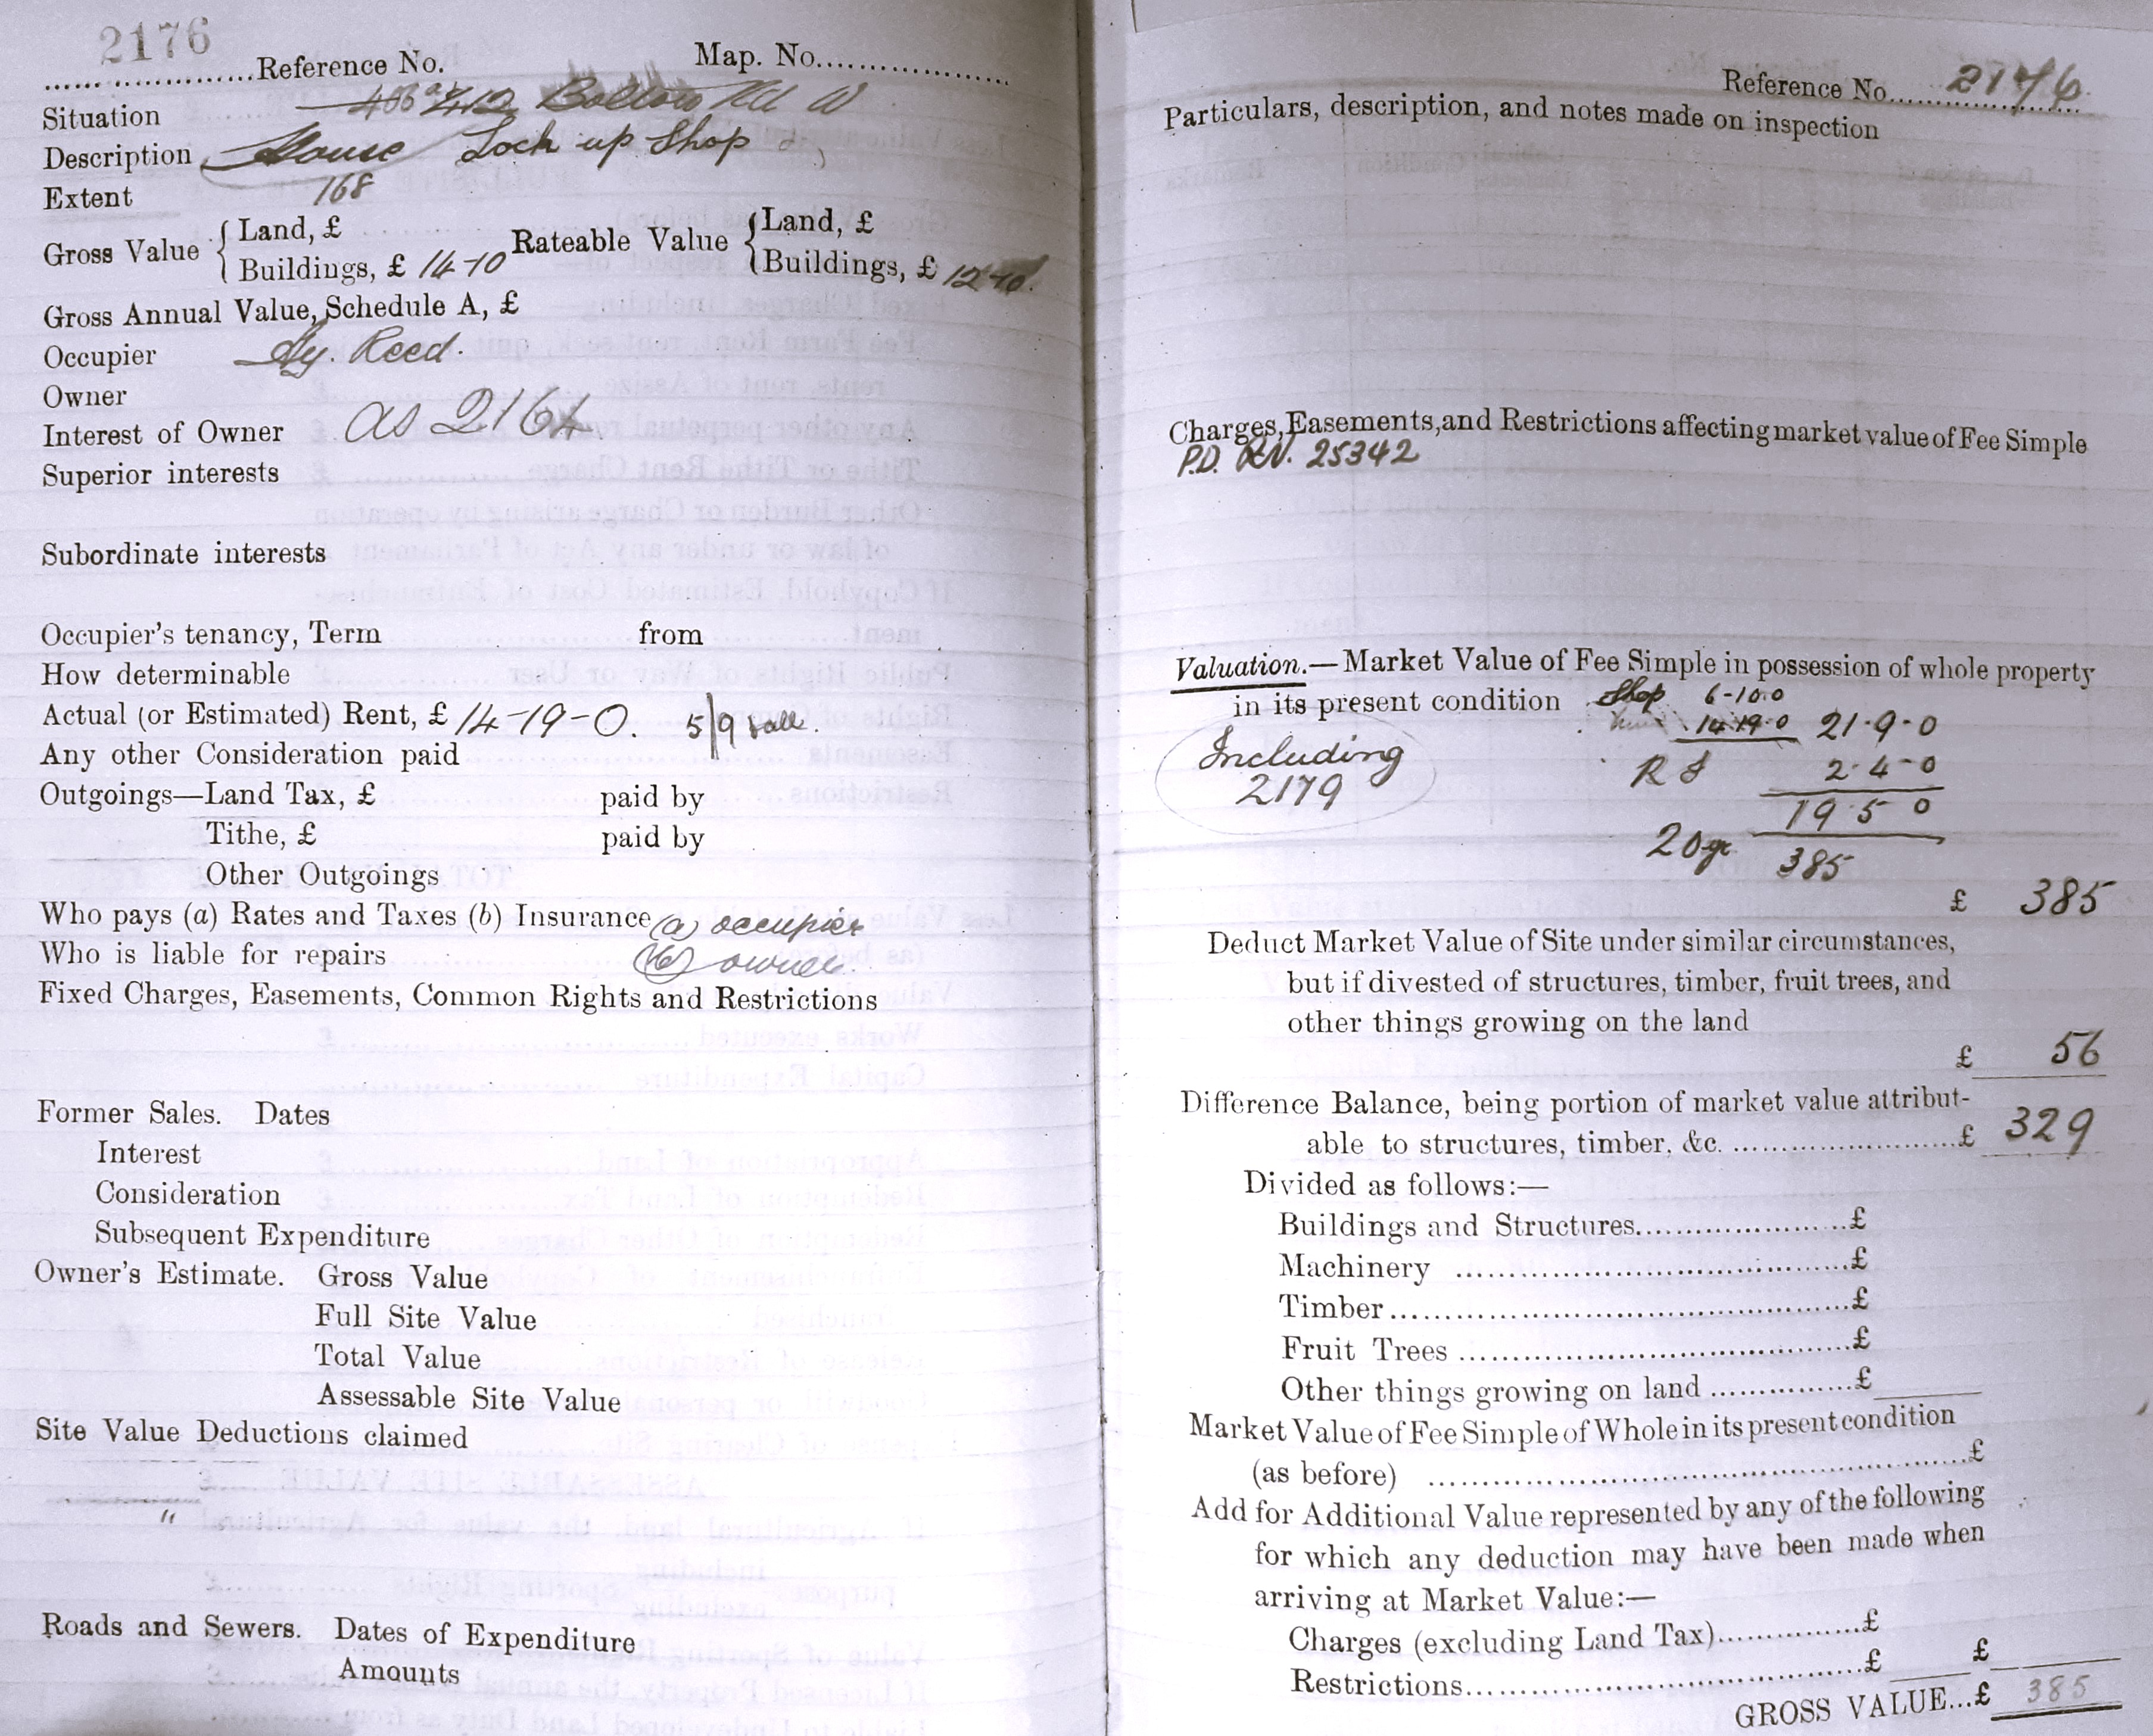 2176
Reference No. Map. No.
Situation 412 Bollo Rd W
Description House Lock up Shop
Extent 168
Gross Value { Land, £ Rateable Value { Land, £
Buildings, £ 14-10 Buildings, £ 12-10
Gross Annual Value, Schedule A, £
Occupier Hy. Reed.
Owner
Interest of Owner as 2164
Superior interests
Subordinate interests
Occupier's tenancy, Term from
How determinable
Actual (or Estimated) Rent, £ 14-19-0. 5/9
Any other Consideration paid
Outgoings—Land Tax, £ paid by
Tithe, £ paid by
Other Outgoings
Who pays (a) Rates and Taxes (b) Insurance (a) occupier
Who is liable for repairs (b) owner.
Fixed Charges, Easements, Common Rights and Restrictions
Former Sales. Dates
Interest
Consideration
Subsequent Expenditure
Owner's Estimate. Gross Value
Full Site Value
Total Value
Assessable Site Value
Site Value Deductions claimed
"
Roads and Sewers. Dates of Expenditure
Amounts
Reference No. 2176
Particulars, description, and notes made on inspection
Charges, Easements, and Restrictions affecting market value of Fee Simple
P.D. 25342
Valuation.—Market Value of Fee Simple in possession of whole property
in its present condition Shop 6-10.0
14.19.0 21-9-0
Including
2179
R & 2-4-0
19.5 0
20 yr 385
£ 385
Deduct Market Value of Site under similar circumstances,
but if divested of structures, timber, fruit trees, and
other things growing on the land
£ 56
Difference Balance, being portion of market value attribut-
able to structures, timber, &c. £ 329
Divided as follows:—
Buildings and Structures £
Machinery £
Timber £
Fruit Trees £
Other things growing on land £
Market Value of Fee Simple of Whole in its present condition
(as before) £
Add for Additional Value represented by any of the following
for which any deduction may have been made when
arriving at Market Value:—
Charges (excluding Land Tax) £
Restrictions £ £
GROSS VALUE...£ 385